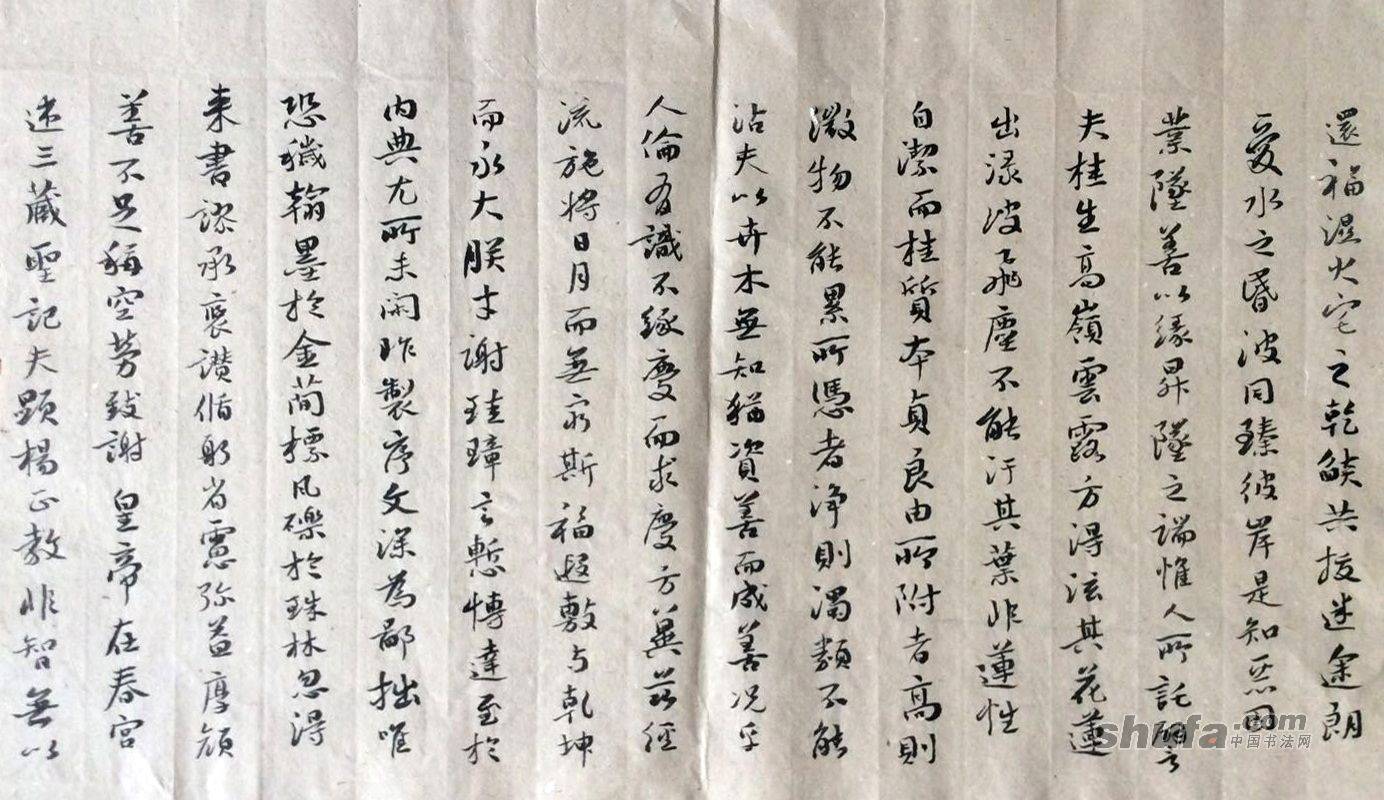 還福濕火宅之乾燄共拔迷途朗
愛水之昏波同臻彼岸是知惡因
業墜善以緣昇昇墜之端惟人所託譬
夫桂生高嶺雲露方得泫其花蓮
出淥波飛塵不能汙其葉非蓮性
自潔而桂質本貞良由所附者高則
微物不能累所憑者淨則濁類不能
沾夫以卉木無知猶資善而成善況乎
人倫有識不緣慶而求慶方冀茲經
流施將日月而無窮斯福遐敷與乾坤
而永大朕才謝珪璋言慙博達至於
內典尤所未閑昨製序文深為鄙拙唯
恐穢翰墨於金簡標瓦礫於珠林忽得
來書謬承褒讚循躬省慮彌益厚顏
善不足稱空勞致謝 皇帝在春宮
述三藏聖記夫顯揚正教非智無以
shufa.com
中国书法网